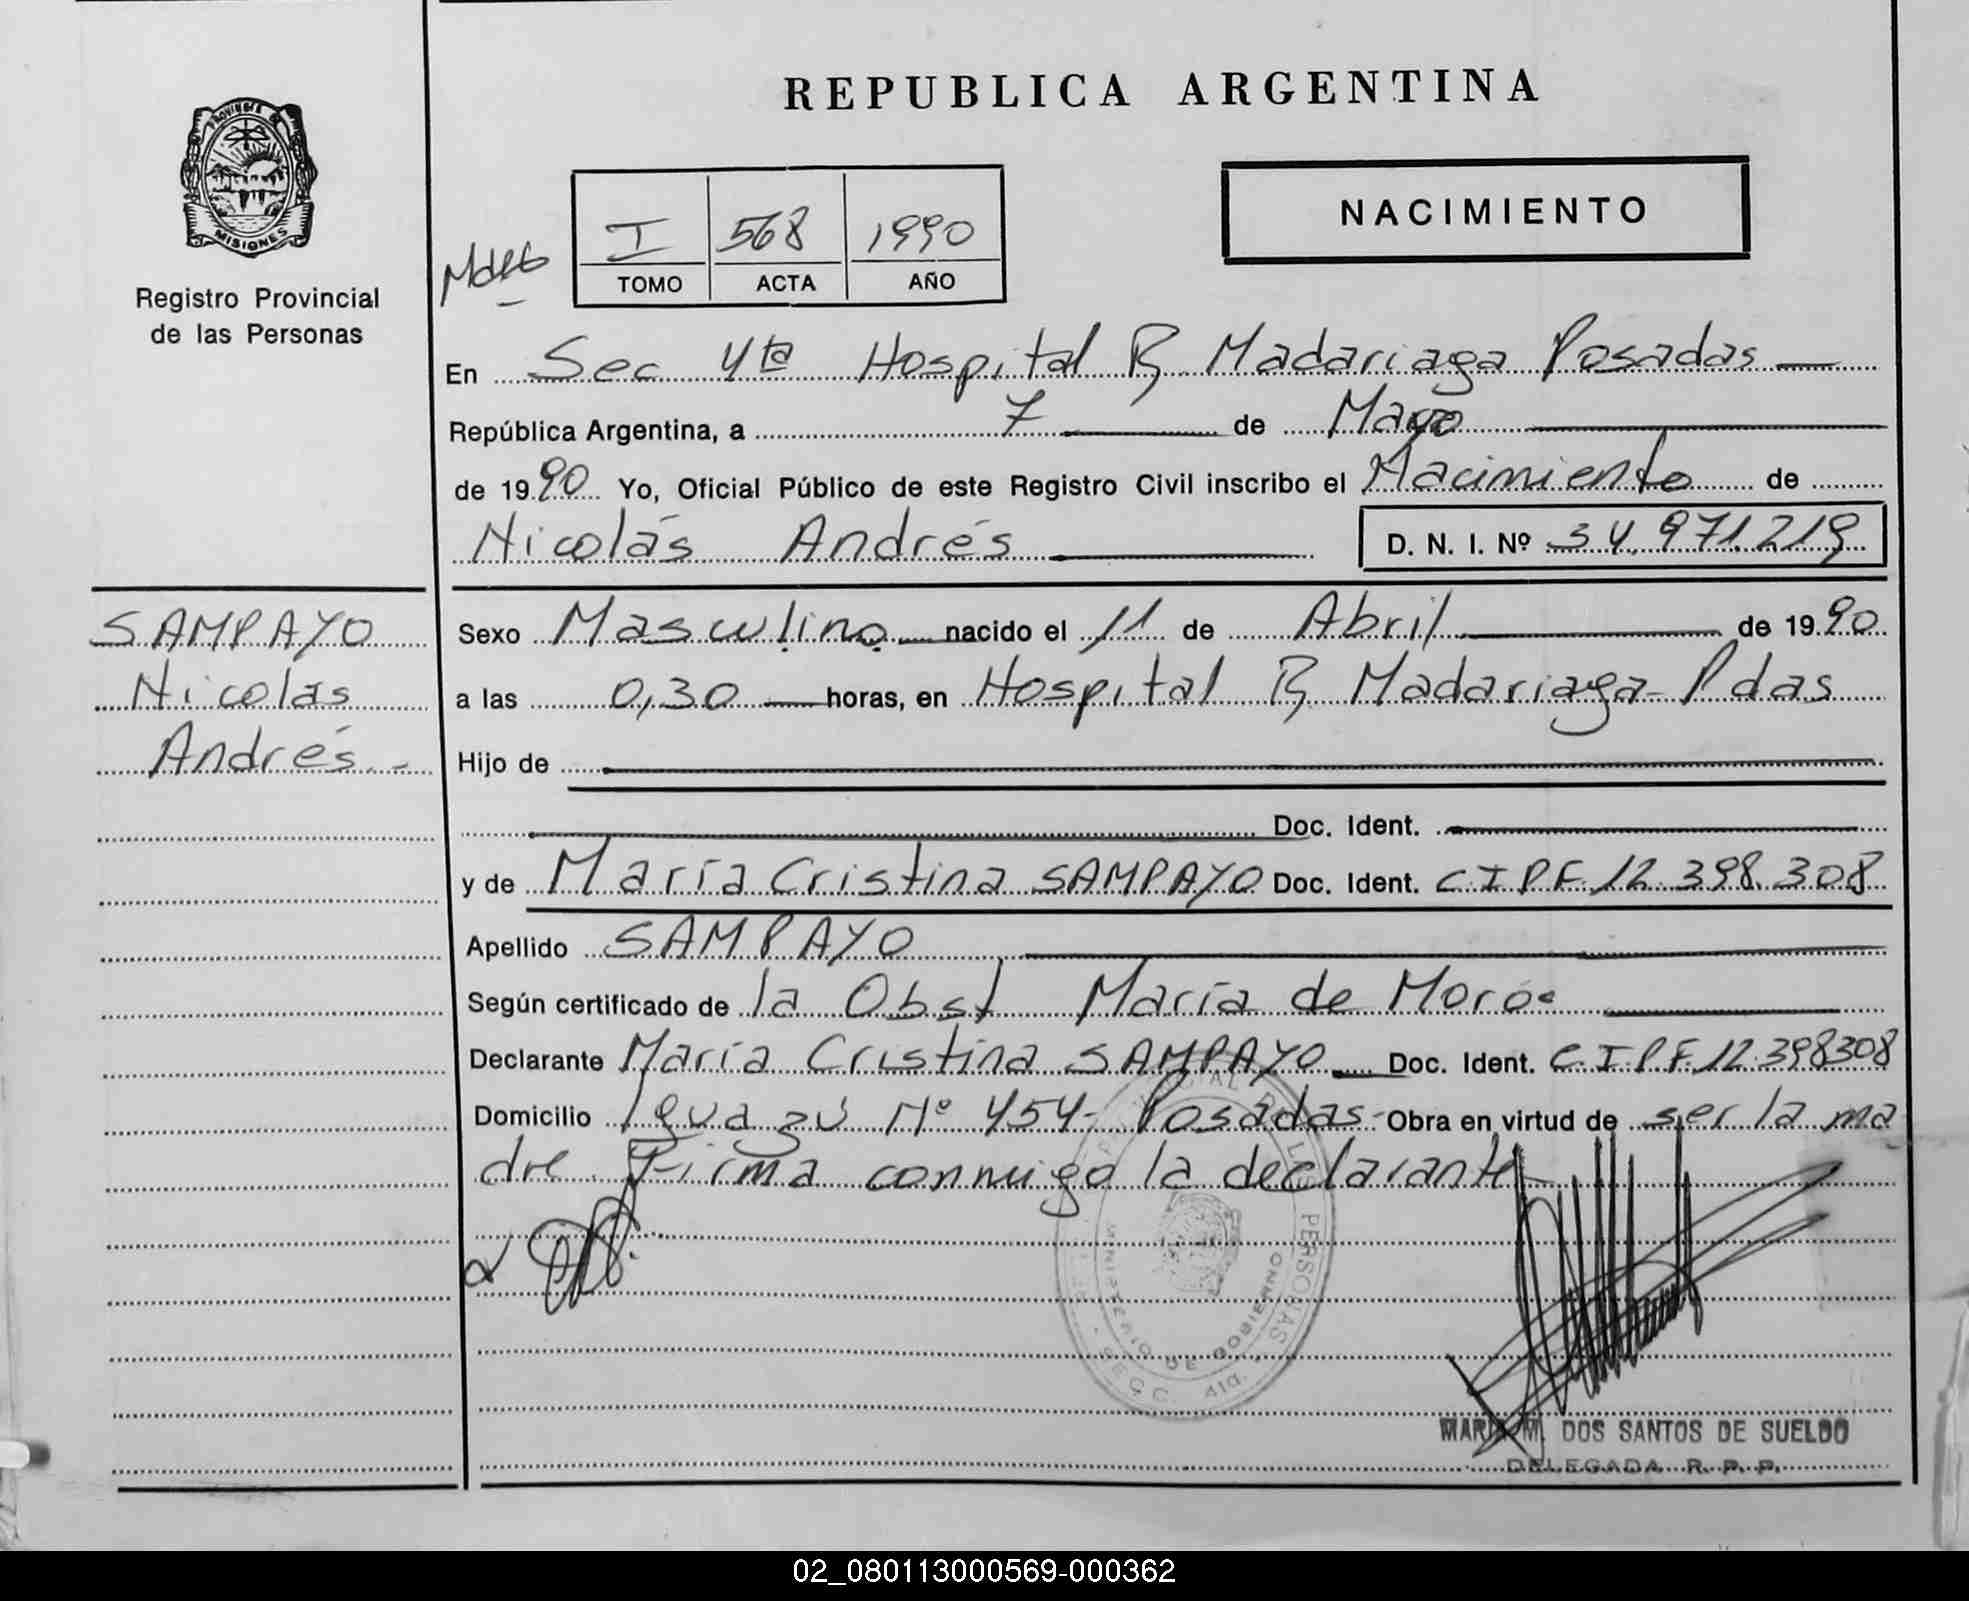 REPUBLICA ARGENTINA
PROVINCIA DE
MISIONES
Registro Provincial
de las Personas
I 568 1990
TOMO ACTA AÑO
NACIMIENTO
En Sec 4ta Hospital R Madariaga Posadas
República Argentina, a 7 de Mayo
de 1990 Yo, Oficial Público de este Registro Civil inscribo el Nacimiento de
Nicolás Andrés D. N. I. Nº 34.971.219
SAMPAYO
Nicolás
Andrés.-
Sexo Masculino nacido el 11 de Abril de 1990
a las 0,30 horas, en Hospital R Madariaga- Pdas
Hijo de
Doc. Ident.
y de María Cristina SAMPAYO Doc. Ident. C I P F. 12.398.308
Apellido SAMPAYO
Según certificado de la Obst María de Moro
Declarante María Cristina SAMPAYO Doc. Ident. C.I.P.F. 12.398308
Domicilio Iguazú Nº 454- Posadas- Obra en virtud de ser la ma
dre. Firma conmigo la declarante
PERSONAS
MINISTERIO DE GOBIERNO
SECC. 4ta.
MARIA M. DOS SANTOS DE SUELDO
DELEGADA R. P. P.
02_080113000569-000362